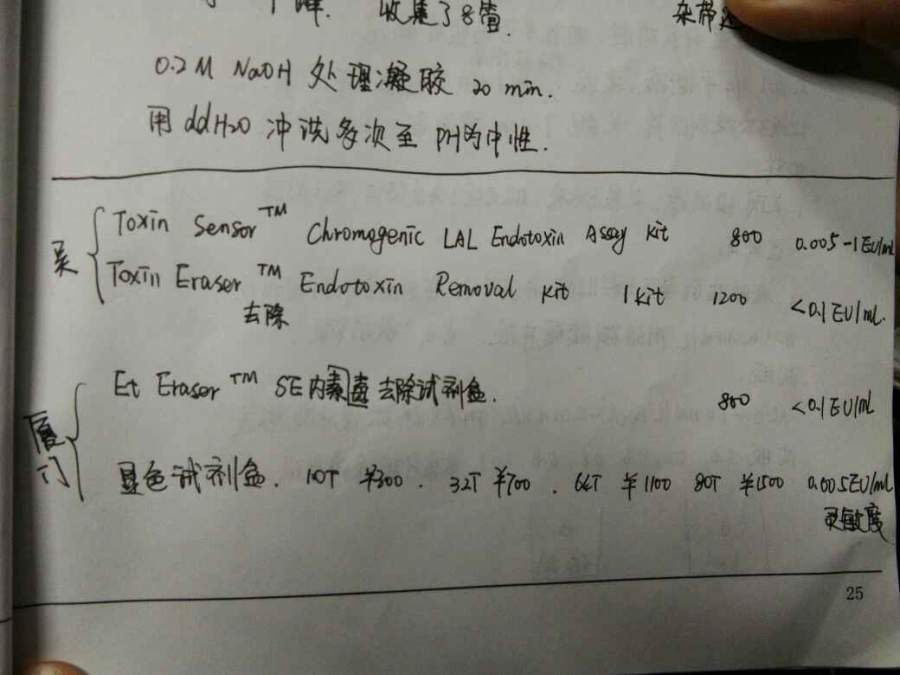 收集了8管. 杂带
0.2M NaOH 处理凝胶 20 min.
用 ddH2O 冲洗多次至 PH为中性.
吴
Toxin Sensor™ Chromogenic LAL Endotoxin Assay Kit 800 0.005-1EU/mL
Toxin Eraser™ Endotoxin Removal Kit 1 Kit 1200 <0.1EU/mL.
去除
厦门
Et Eraser™ SE内素毒去除试剂盒. 800 <0.1EU/mL
显色试剂盒. 10T ¥300. 32T ¥700. 64T ¥1100 80T ¥1500 0.005EU/mL
灵敏度
25